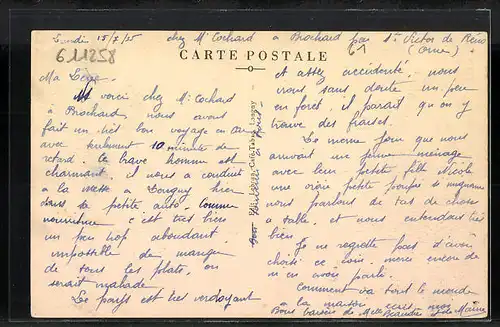 Lundi 15/7/25 chez Mr Cochard à Brochard par St Victor de Réno
(Orne)
611258
61
CARTE POSTALE
Ma
voici chez Mr Cochard
à Brochard nous avons
fait un très bon voyage en
avec seulement 10 minutes de
retard. le brave homme est
charmant. il nous a conduit
à la messe à Longny hier
dans sa petite auto. comme
nourriture c'est très bien
un peu trop abondant.
impossible de manger
de tous les plats, on
serait malade.
Le pays est très verdoyant
et assez accidenté. nous
irons sans doute un peu
en foret. il parait qu'on y
trouve des fraises.
Le meme jour que nous
arrivait un jeune ménage
avec leur petite fille Nicole
une vraie petite poupée si mignonne
nous parlons de tas de choses
à table, et nous entendons très
bien.
Je ne regrette pas d'avoir
choisi ce coin. merci encore de
m'en avoir parlé.
Comment va tout le monde
à la maison écris moi
Bons baisers de